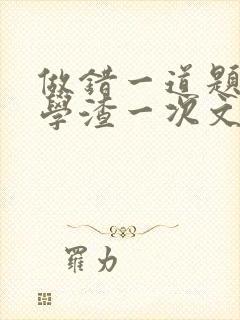 做错一道题
學渣一次文
羅力